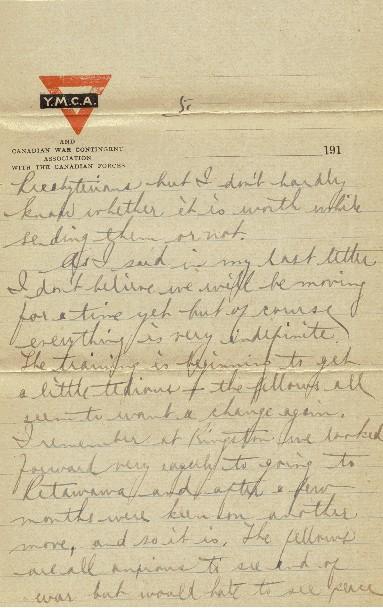 Y.M.C.A.
5.
AND
CANADIAN WAR CONTINGENT
ASSOCIATION
WITH THE CANADIAN FORCES
191
Presbyterians but I don't hardly
know whether it is worth while
sending them or not.
As I said in my last letter
I don't believe we will be moving
for a time yet but of course
everything is very indefinite.
The training is beginning to get
a little tedious + the fellows all
seem to want a change again.
I remember at Kingston we looked
forward very eagerly to going to
Petawawa and after a few
months were keen on another
move, and so it is. The fellows
are all anxious to see end of
war but would hate to see peace